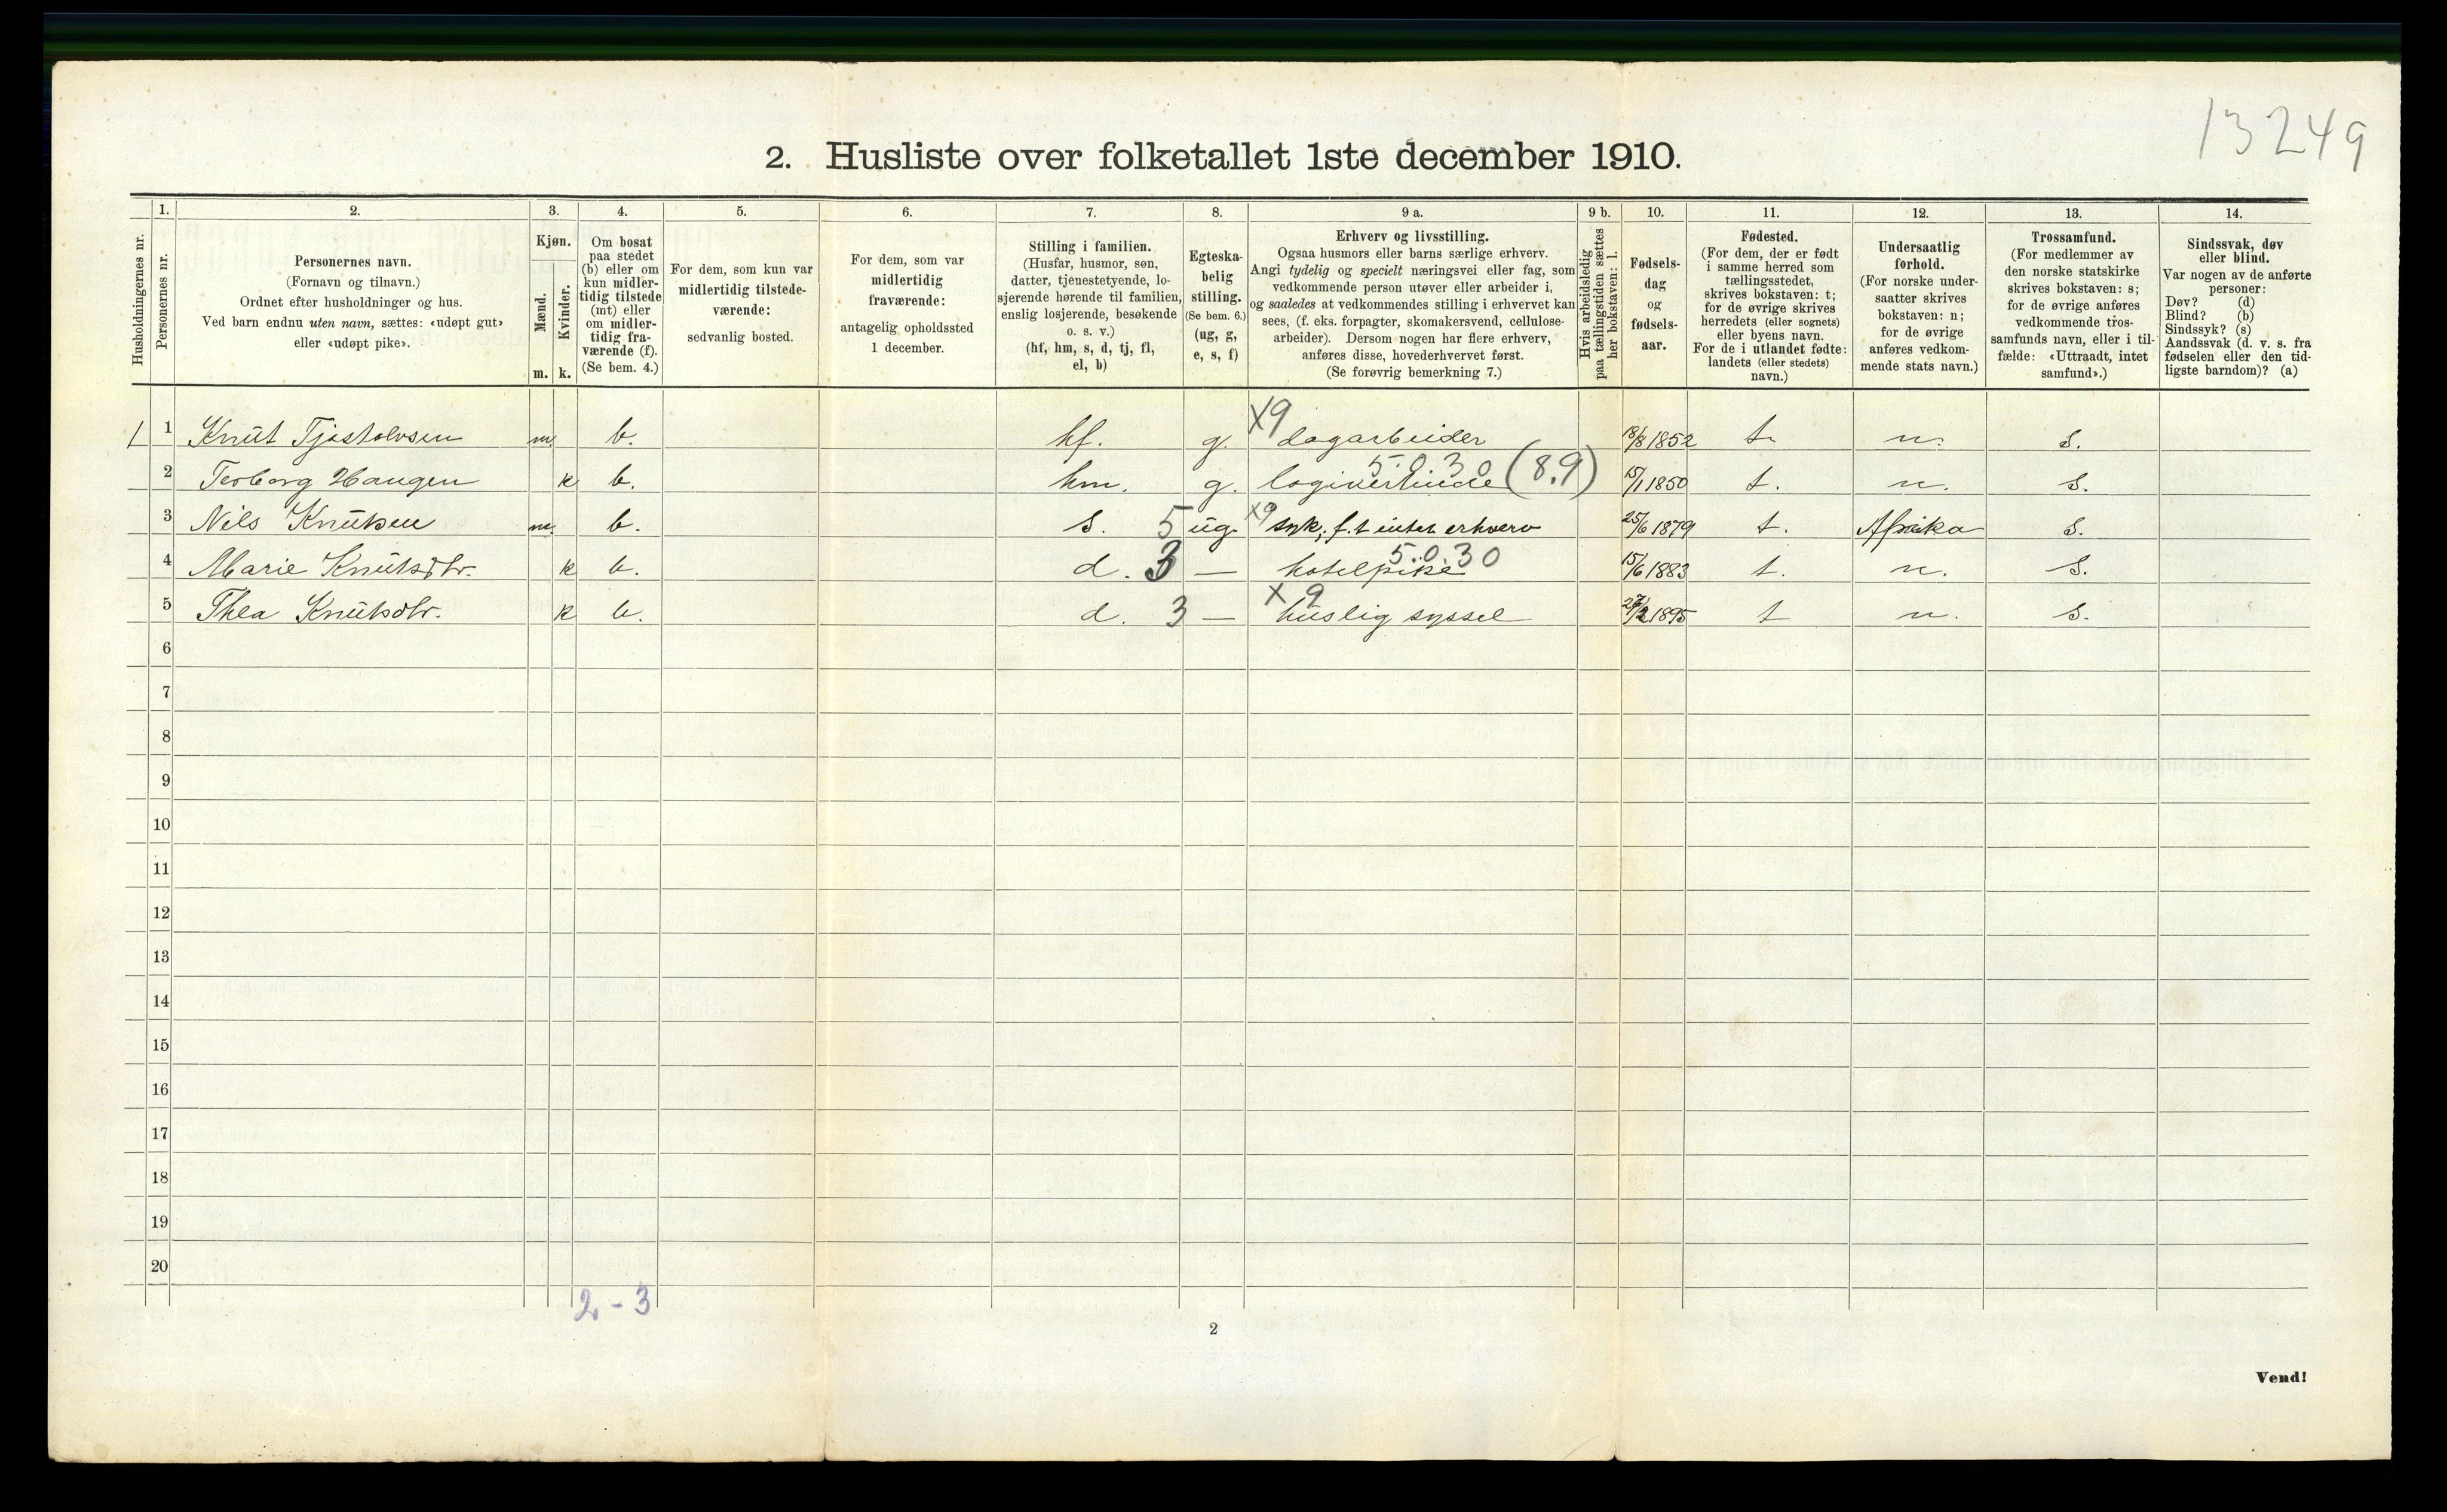 13249
2. Husliste over folketallet 1ste december 1910.
Husholdningernes nr.
1. Personernes nr.
2. Personernes navn. (Fornavn og tilnavn.) Ordnet efter husholdninger og hus. Ved barn endnu uten navn, sættes: «udøpt gut» eller «udøpt pike».
3. Kjøn. Mænd. m. Kvinder. k.
4. Om bosat paa stedet (b) eller om kun midlertidig tilstede (mt) eller om midlertidig fraværende (f). (Se bem. 4.)
5. For dem, som kun var midlertidig tilstedeværende: sedvanlig bosted.
6. For dem, som var midlertidig fraværende: antagelig opholdssted 1 december.
7. Stilling i familien. (Husfar, husmor, søn, datter, tjenestetyende, losjerende hørende til familien, enslig losjerende, besøkende o. s. v.) (hf, hm, s, d, tj, fl, el, b)
8. Egteskabelig stilling. (Se bem. 6.) (ug, g, e, s, f)
9 a. Erhverv og livsstilling. Ogsaa husmors eller barns særlige erhverv. Angi tydelig og specielt næringsvei eller fag, som vedkommende person utøver eller arbeider i, og saaledes at vedkommendes stilling i erhvervet kan sees, (f. eks. forpagter, skomakersvend, cellulosearbeider). Dersom nogen har flere erhverv, anføres disse, hovederhvervet først. (Se forøvrig bemerkning 7.)
9 b. Hvis arbeidsledig paa tællingstiden sættes her bokstaven: l.
10. Fødselsdag og fødselsaar.
11. Fødested. (For dem, der er født i samme herred som tællingsstedet, skrives bokstaven: t; for de øvrige skrives herredets (eller sognets) eller byens navn. For de i utlandet fødte: landets (eller stedets) navn.)
12. Undersaatlig forhold. (For norske undersaatter skrives bokstaven: n; for de øvrige anføres vedkommende stats navn.)
13. Trossamfund. (For medlemmer av den norske statskirke skrives bokstaven: s; for de øvrige anføres vedkommende trossamfunds navn, eller i tilfælde: «Uttraadt, intet samfund».)
14. Sindssvak, døv eller blind. Var nogen av de anførte personer: Døv? (d) Blind? (b) Sindssyk? (s) Aandssvak (d. v. s. fra fødselen eller den tidligste barndom)? (a)
1 1 Knut Tjostolvsen m b. hf. g. X9 dagarbeider 18/8 1852 t. n. s.
2 Torborg Haugen k b. hm. g. logivertinde 5.0.30 (8.9) 15/1 1850 t. n. s.
3 Nils Knutsen m. b. s. 5 ug. X9 syk, f.t intet erhverv 25/6 1879 t. Afrika s.
4 Marie Knutsdtr. k b. d. 3 — hotelpike 5.0.30 15/6 1883 t. n. s.
5 Thea Knutsdtr. k b. d. 3 — X9 huslig syssel 1895 t n. s.
6
7
8
9
10
11
12
13
14
15
16
17
18
19
20
2-3
2
Vend!